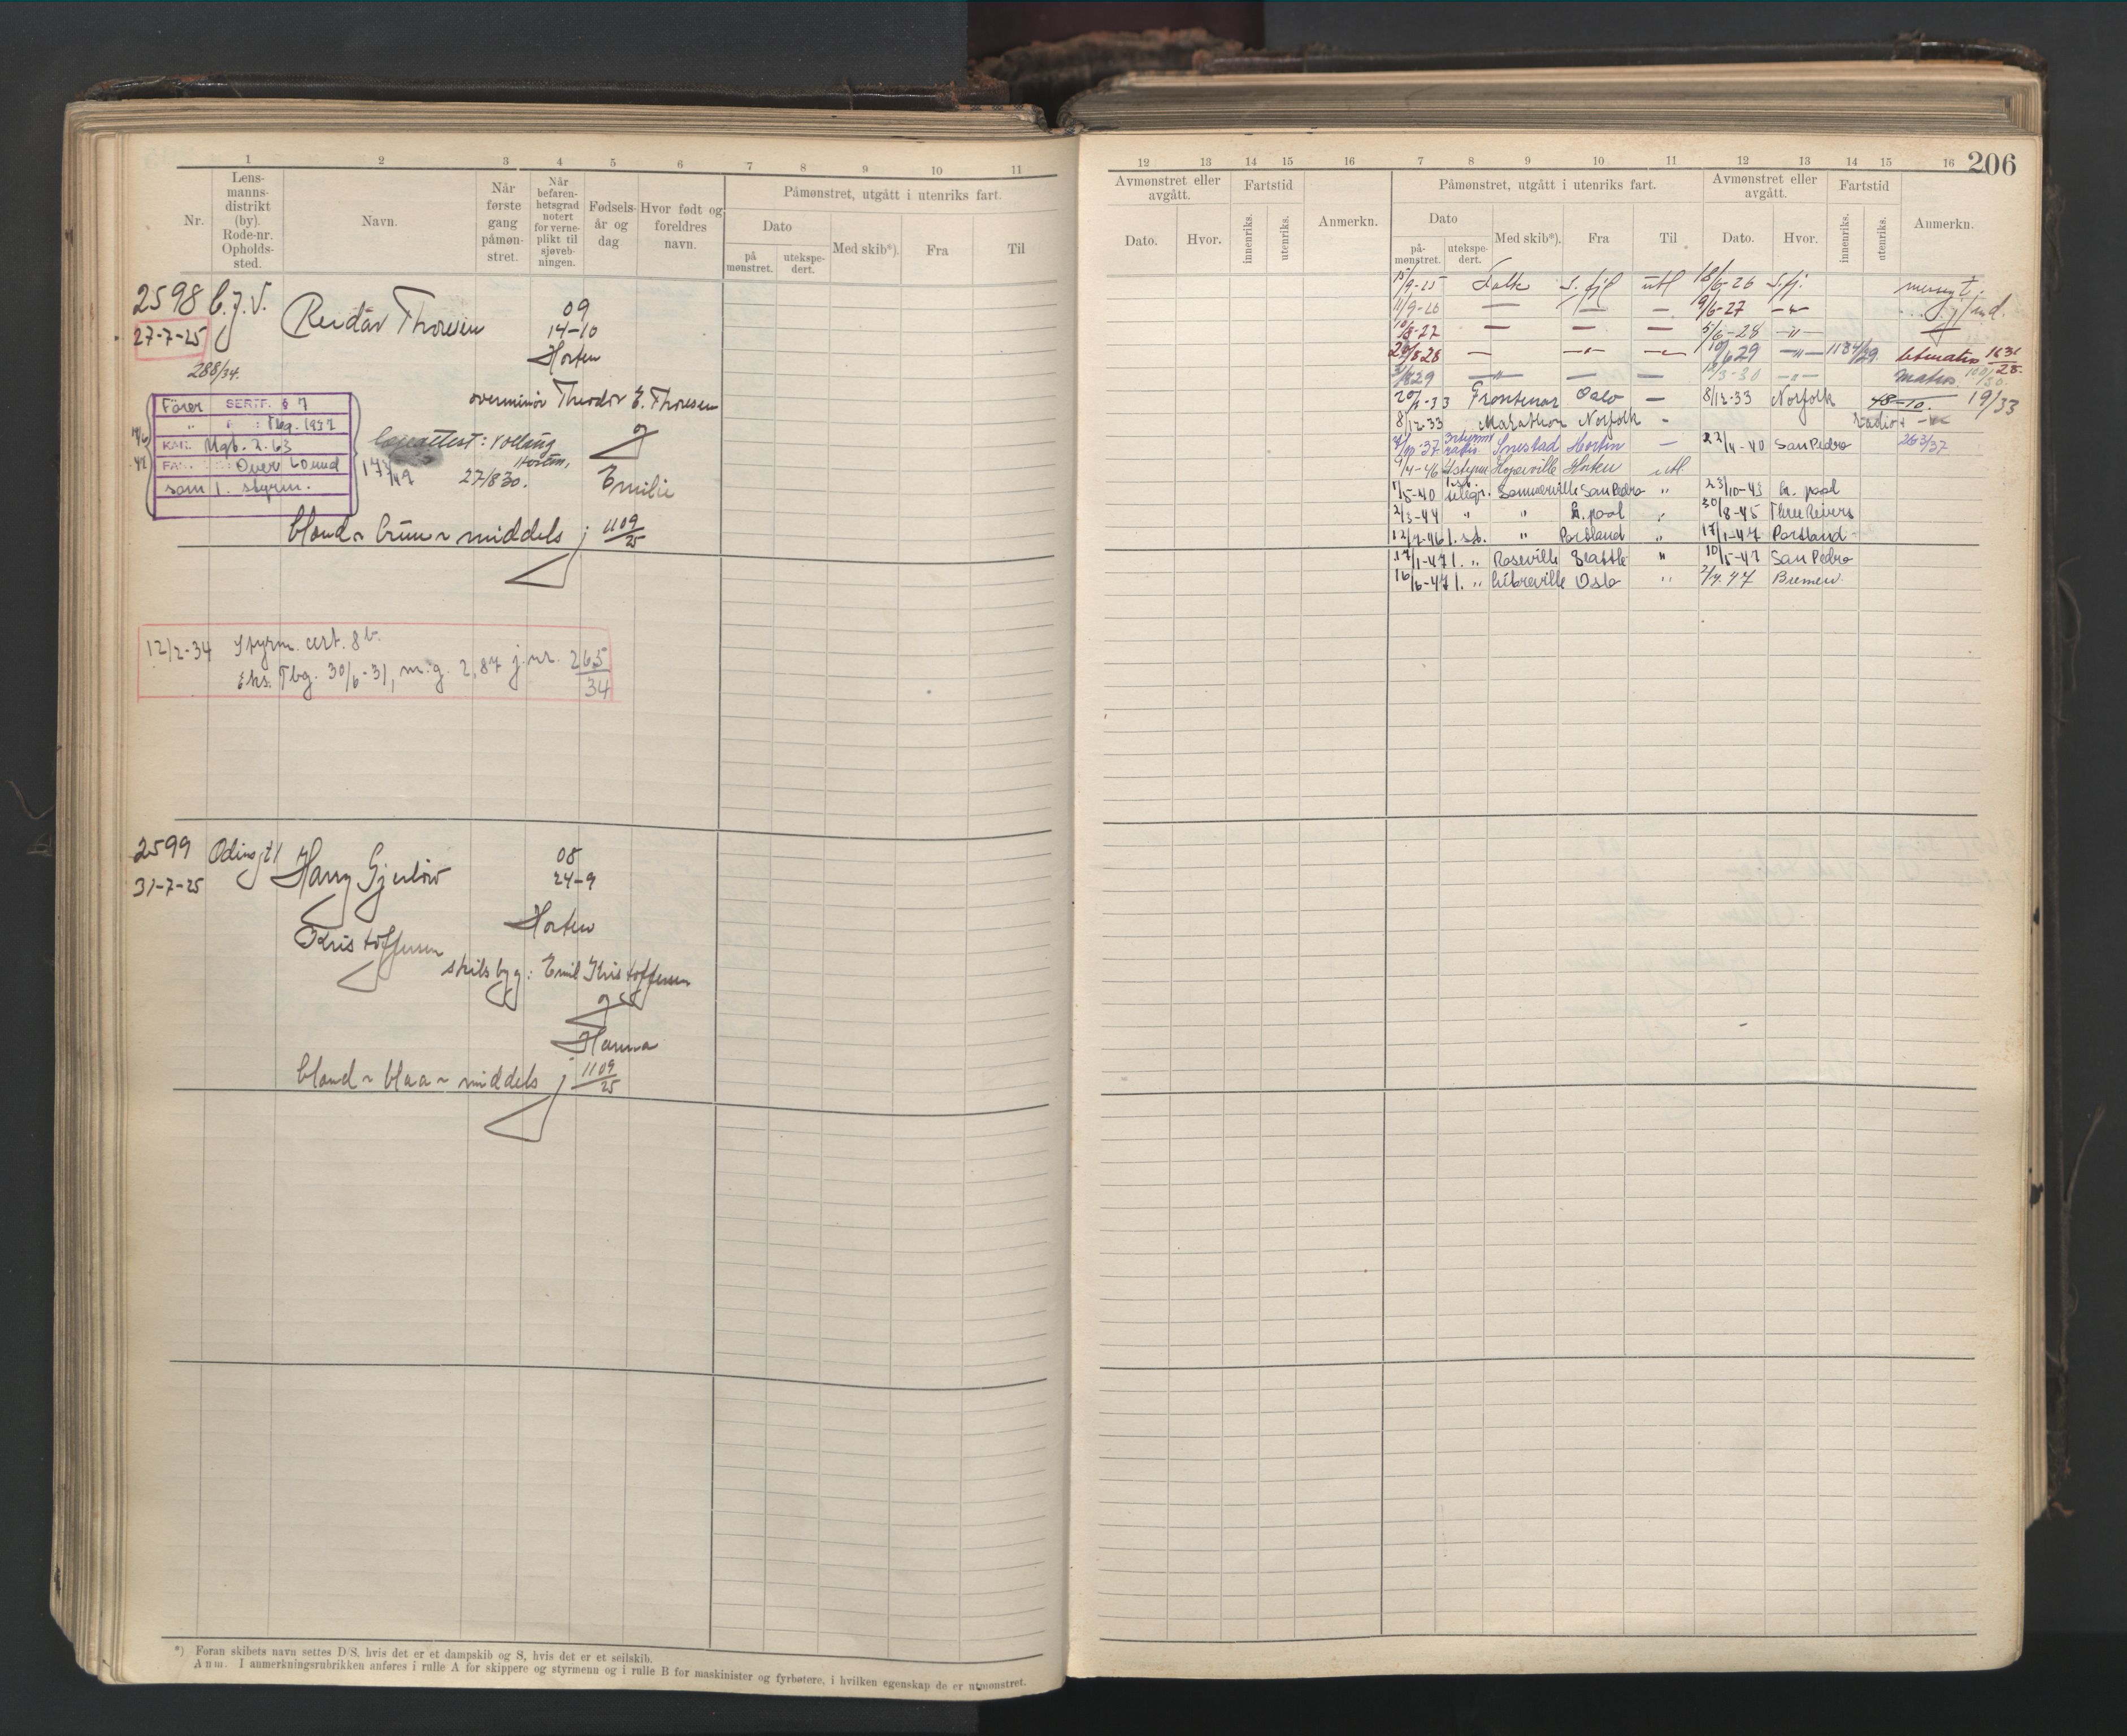 1 2 3 4 5 6 7 8 9 10 11
Nr.
Lens-
manns-
distrikt
(by).
Rode-nr.
Opholds-
sted.
Navn.
Når
første
gang
påmøn-
stret.
Når
befaren-
hetsgrad
notert
for verne-
plikt til
sjøveb-
ningen.
Fødsels-
år og
dag
Hvor født og
foreldres
navn.
Påmønstret, utgått i utenriks fart.
Dato
på
mønstret.
utekspe-
dert.
Med skib*).
Fra
Til
2598 C.J.V. Reidar Thoresen 09
27-7-25 14-10
Horten
288/34.
overminör Theodor E. Thoresen
og
Emilie
Förer SERTF. § 7
" " : Tbg. 1937
KAR. Ugb. 2.63
FAR. Over 60 mnd
som 1. styrm.
27/8 30. Horten,
blond ~ brun ~ middels j 1109/25
12/2-34 Styrm. cert. 8b.
Eks. Tbg. 30/6-31, m.g. 2,87 j.nr. 265/34
2599 Odinsgt 1 Harry Gjerlöw 08
31-7-25 24-9
Horten
Kristoffersen
skibsbyg: Emil Kristoffersen
og
Hanna
blond ~ blaa ~ middels j 1109/25
*) Foran skibets navn settes D/S, hvis det er et dampskib og S, hvis det er et seilskib.
Anm. I anmerkningsrubrikken anføres i rulle A for skippere og styrmenn og i rulle B for maskinister og fyrbøtere, i hvilken egenskap de er utmønstret.
12 13 14 15 16 7 8 9 10 11 12 13 14 15 16 206
Avmønstret eller
avgått.
Fartstid
Dato.
Hvor.
innenriks.
utenriks.
Anmerkn.
Påmønstret, utgått i utenriks fart.
Dato
på-
mønstret.
utekspe-
dert.
Med skib*).
Fra
Til
Avmønstret eller
avgått.
Fartstid
Dato.
Hvor.
innenriks.
utenriks.
Anmerkn.
15/9-25 Falk S. fjl utl 18/6-26 S.fj.
11/9-26 — — — 9/6-27 —"— J/md.
10/8-27 — — — 5/6-28 —"—
20/8 28 — —"— — 10/6 29 —"— 1134/29.
3/8 29 —"— — — 12/3-30 —"— matros 100/30.
20/5-33 Frontenac Oslo — 8/12-33 Norfolk 19/33
8/12-33 Marathon Norfolk -
Snestad Horten — 22/4-40 San Pedro 263/37
9/4-46 Hopeville Horten utl
1/5-40 telegr. Sommerville San Pedro " 23/10-43 L. pool
2/3-44 " " L. pool " 30/8-45 Three Rivers
12/7-46 1. st. " Portland " 17/1-47 Portland
17/1-47 1. " Roseville Seattle " 10/5-47 San Pedro
16/6-47 1. " Libreville Oslo " 2/7.47 Bremen